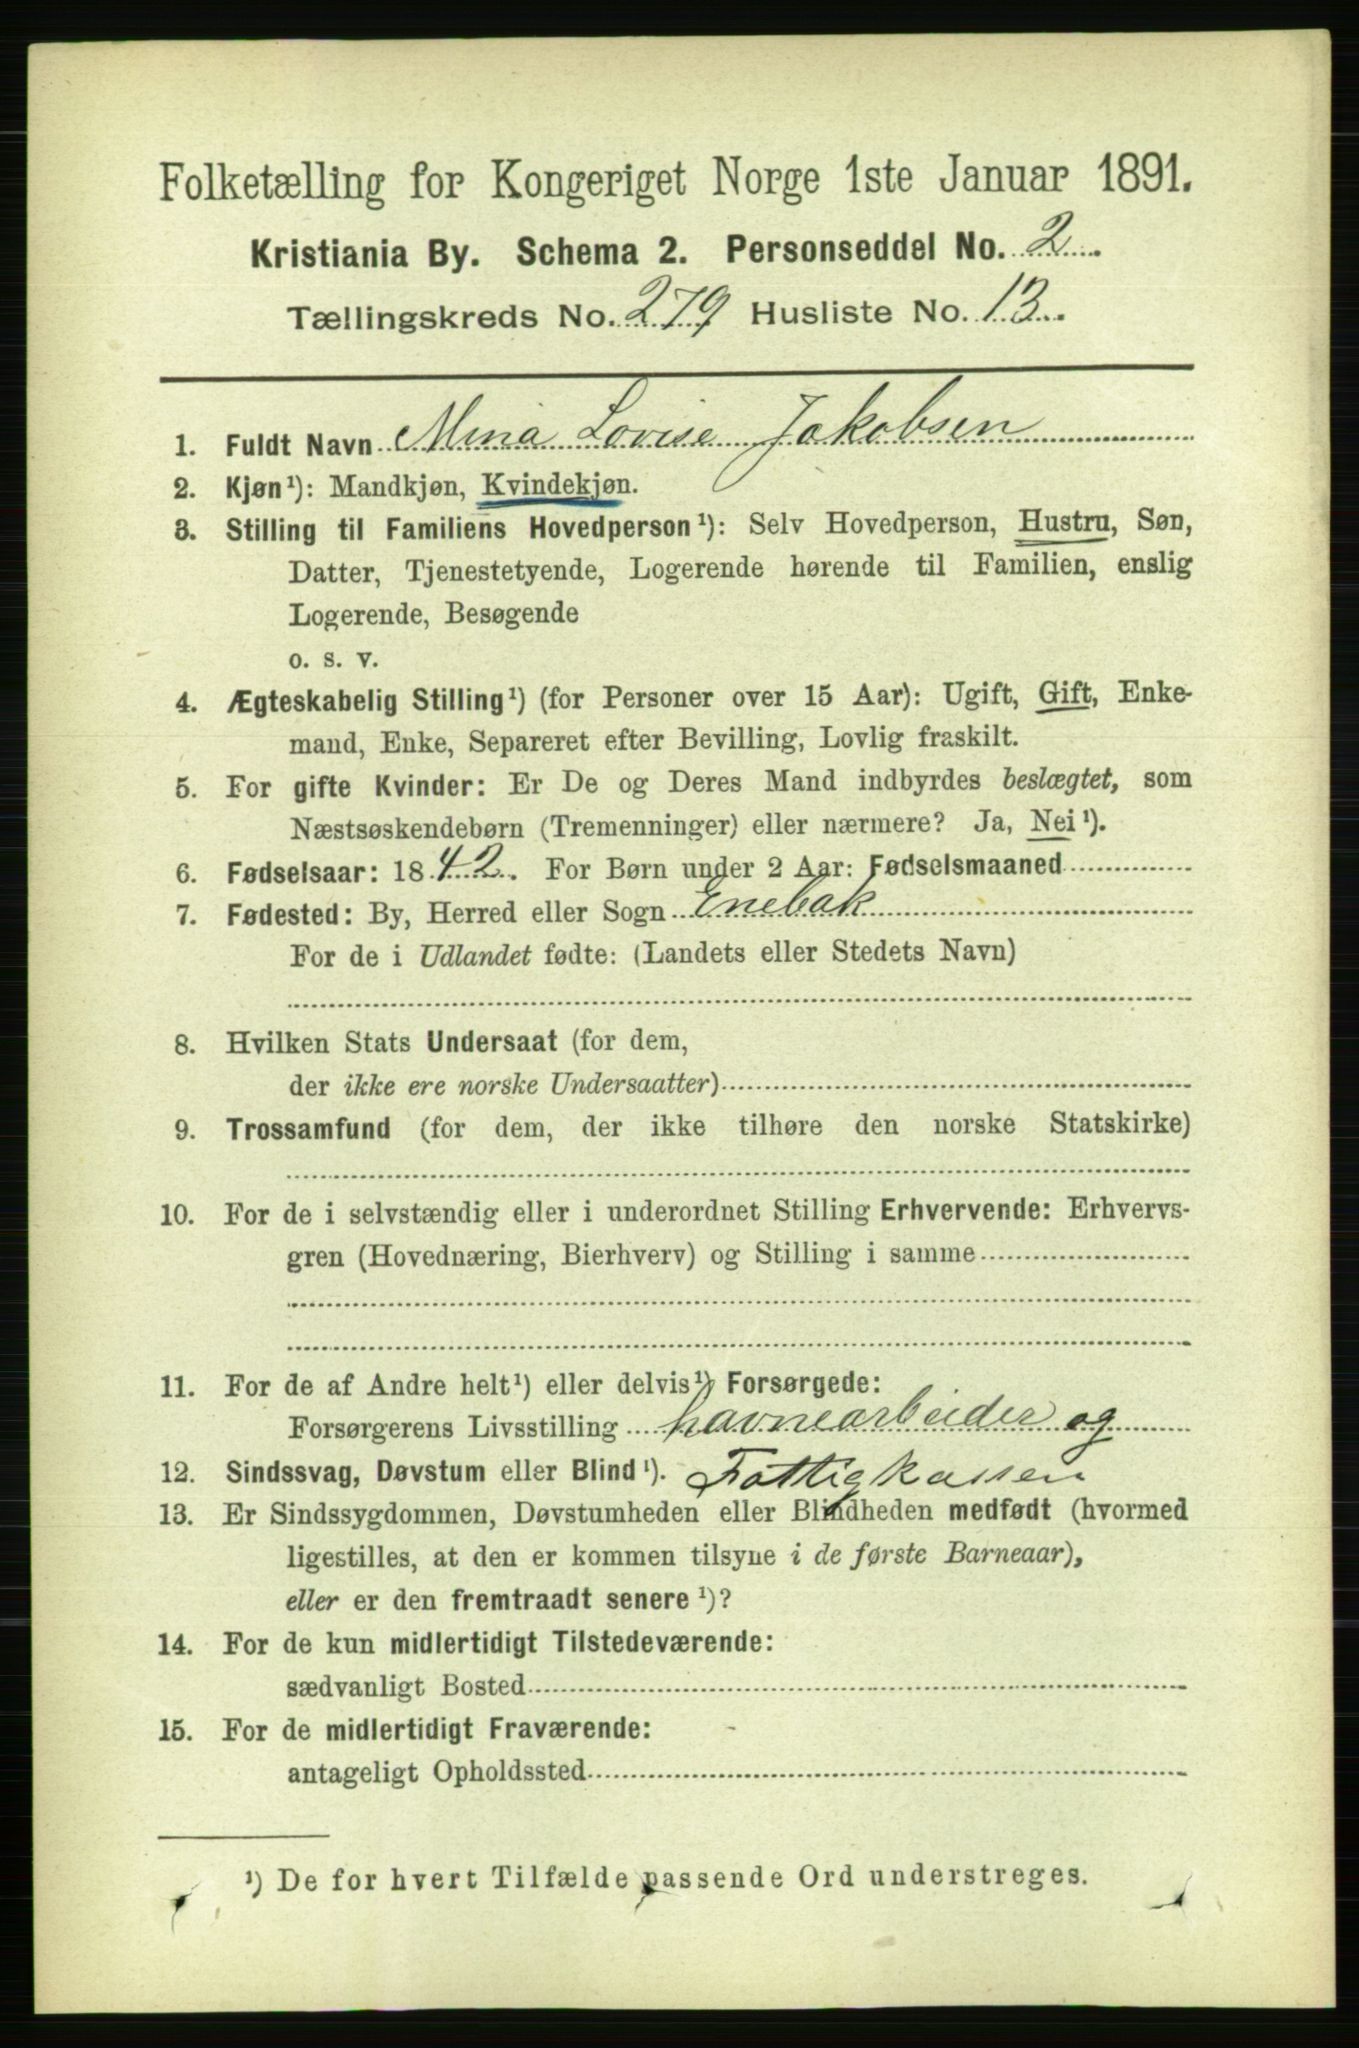 Folketælling for Kongeriget Norge 1ste Januar 1891.
Kristiania By. Schema 2. Personseddel No. 2
Tællingskreds No. 279 Husliste No. 13
1. Fuldt Navn Mina Lovise Jakobsen
2. Kjøn¹): Mandkjøn, Kvindekjøn.
3. Stilling til Familiens Hovedperson¹): Selv Hovedperson, Hustru, Søn,
Datter, Tjenestetyende, Logerende hørende til Familien, enslig
Logerende, Besøgende
o. s. v.
4. Ægteskabelig Stilling¹) (for Personer over 15 Aar): Ugift, Gift, Enke-
mand, Enke, Separeret efter Bevilling, Lovlig fraskilt.
5. For gifte Kvinder: Er De og Deres Mand indbyrdes beslægtet, som
Næstsøskendebørn (Tremenninger) eller nærmere? Ja, Nei¹).
6. Fødselsaar: 1842. For Børn under 2 Aar: Fødselsmaaned
7. Fødested: By, Herred eller Sogn Enebak
For de i Udlandet fødte: (Landets eller Stedets Navn)
8. Hvilken Stats Undersaat (for dem,
der ikke ere norske Undersaatter)
9. Trossamfund (for dem, der ikke tilhøre den norske Statskirke)
10. For de i selvstændig eller i underordnet Stilling Erhvervende: Erhvervs-
gren (Hovednæring, Bierhverv) og Stilling i samme
11. For de af Andre helt¹) eller delvis¹) Forsørgede:
Forsørgerens Livsstilling havnearbeider og
12. Sindssvag, Døvstum eller Blind¹). Fattigkassen
13. Er Sindssygdommen, Døvstumheden eller Blindheden medfødt (hvormed
ligestilles, at den er kommen tilsyne i de første Barneaar),
eller er den fremtraadt senere¹)?
14. For de kun midlertidigt Tilstedeværende:
sædvanligt Bosted
15. For de midlertidigt Fraværende:
antageligt Opholdssted
¹) De for hvert Tilfælde passende Ord understreges.